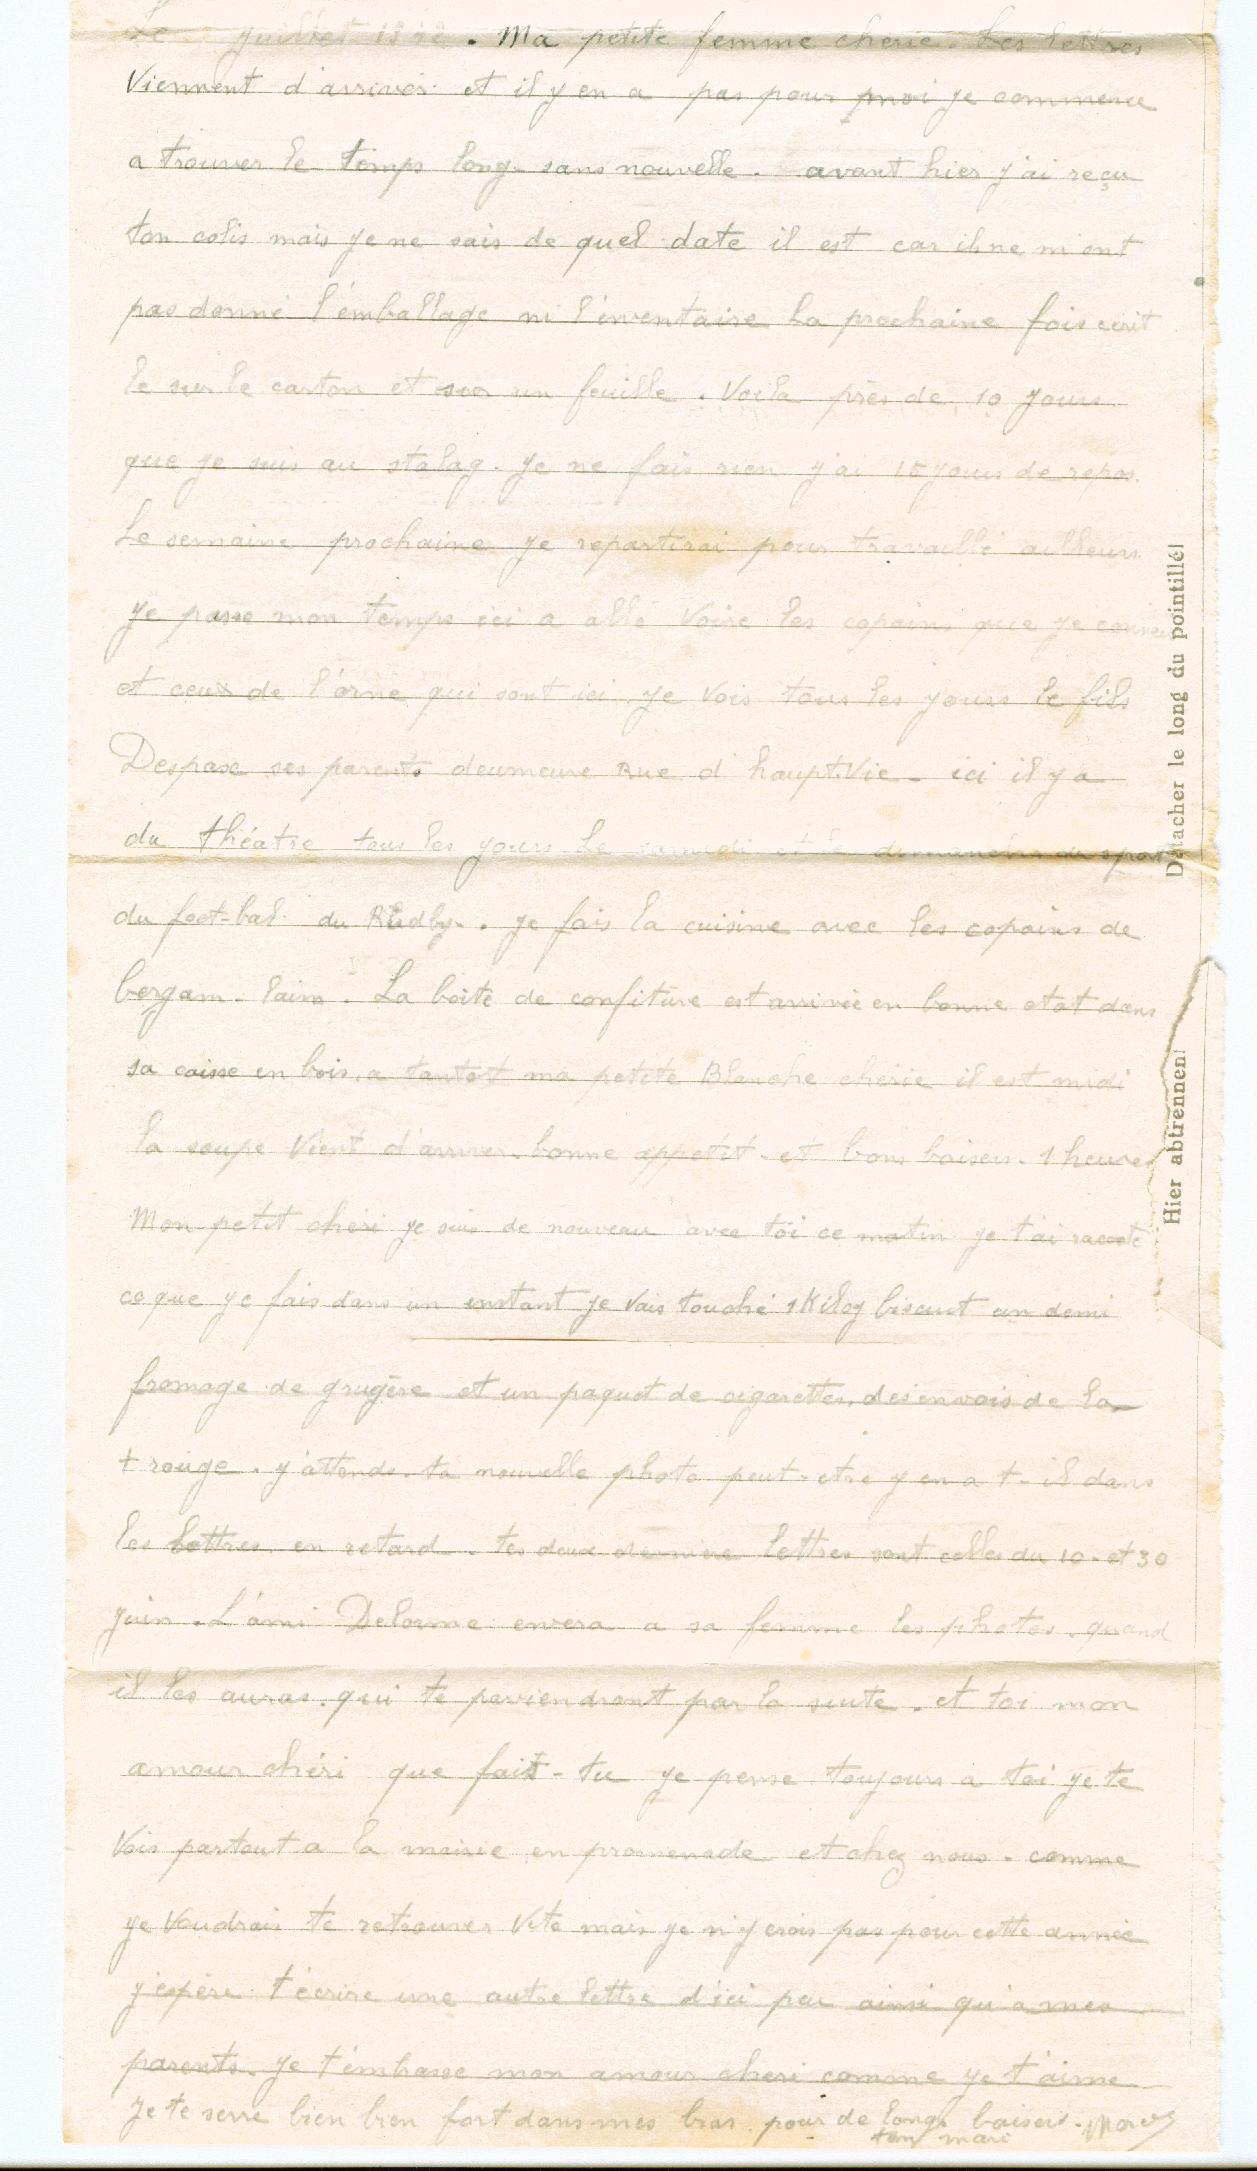 Le juillet 1942. Ma petite femme chérie. Les lettres
Viennent d'arriver et il y en a pas pour moi je commence
a trouver le temps long sans nouvelle. avant hier j'ai reçu
ton colis mais je ne sais de quel date il est car ils ne m'ont
pas donné l'emballage ni l'inventaire La prochaine fois ecrit
le sur le carton et sur un feuille. Voila près de 10 jours
que je suis au stalag. Je ne fais rien j'ai 15 jours de repos.
Le semaine prochaine je repartirai pour travaillé ailleurs
Je passe mon temps ici a allé Voire les copains que je connais
et ceux de l'orne qui sont ici Je Vois tous les jours le fils
Despase ses parents deumeure Rue d'haupt.Vie - ici il y a
du théatre tous les jours Le samedi et le dimanche du sport
du foot-bal du Rudby. je fais la cuisine avec les copains de
bergam-laim. La boite de confiture est arrivée en bonne etat dans
sa caisse en bois, a tantot ma petite Blanche chérie il est midi
la soupe Vient d'arriver. bonne appetit. et bons baisers. 1 heures
Mon petit chéri je suis de nouveau avec toi ce matin je t'ai raconté
ce que je fais dans un instant je Vais touché 1 Kilog biscuit un demi
fromage de gruyère et un paquet de cigarettes, des envois de la
+ rouge. j'attends ta nouvelle photo peut-etre y en a t-il dans
les lettres en retard. tes deux derniere lettres sont celles du 10 et 30
juin. L'ami Delorme envera a sa femme les photos. quand
il les auras. qui te parviendront par la suite. et toi mon
amour chéri que fait-tu je pense toujours a toi je te
Vois partout a la mairie en promenade et chez nous. comme
je Voudrais te retrouver Vite mais je n'y crois pas pour cette année
j'espère t'écrire une autre lettre d'ici peu ainsi qu'a mes
parents. Je t'embrasse mon amour cheri comme je t'aime
Je te serre bien bien fort dans mes bras pour de longs baisers.
ton mari
Detacher le long du pointillé!
Hier abtrennen!